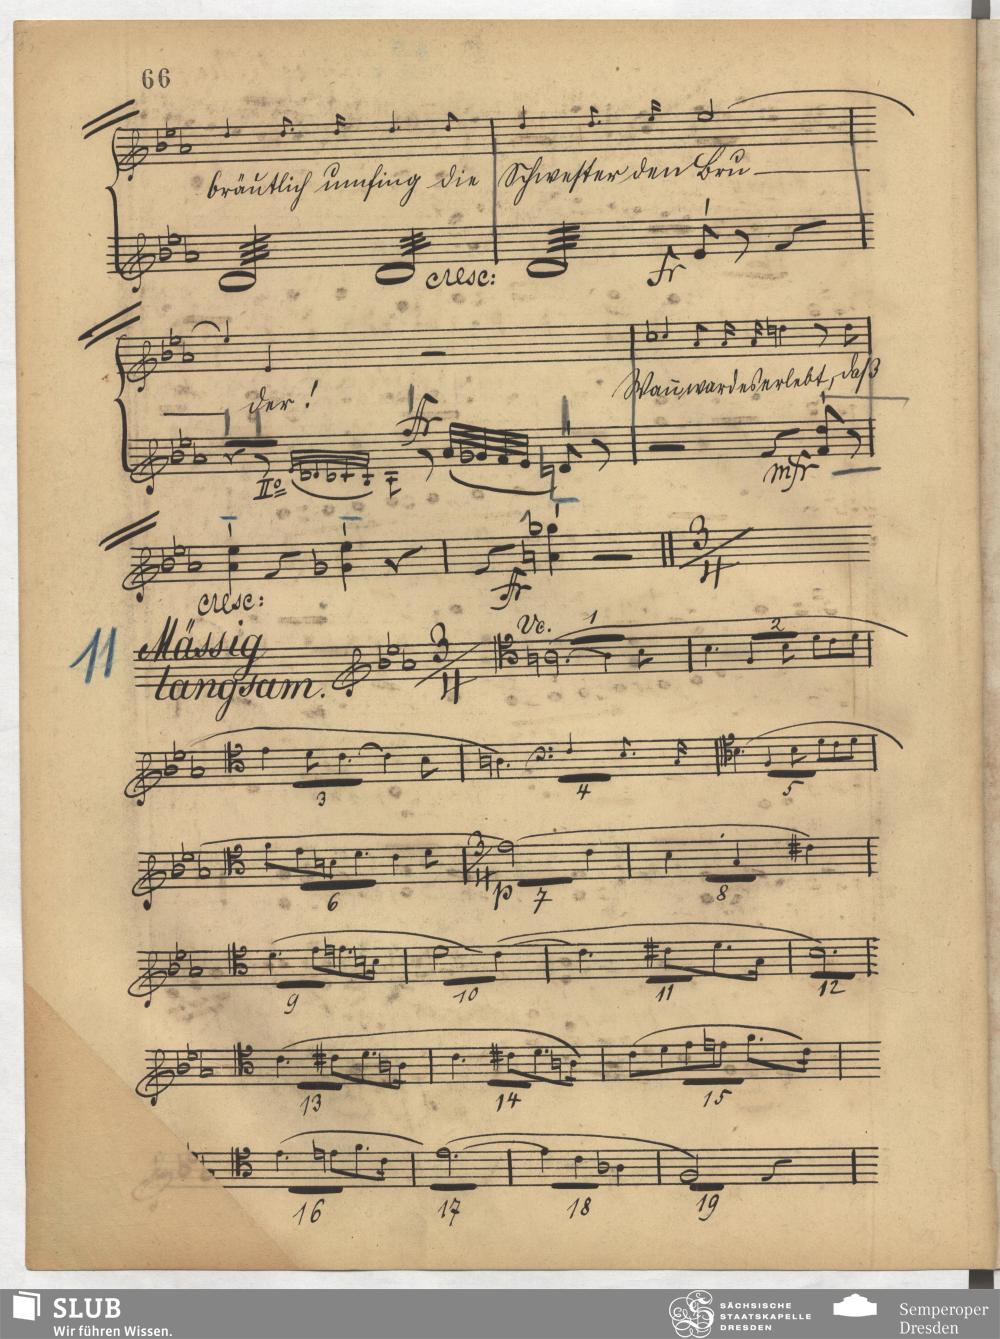 66
bräutlich umfing die Schwester den Bru-
cresc:
fr
der!
Wan̄ ward es erlebt, daß
IIo
fr
mfr
cresc:
fr
3/4
11
Mässig
langsam.
3/4
Vc.
1
2
3
4
5
6
3/4
p
7
8
9
10
11
12
13
14
15
16
17
18
19
SLUB
Wir führen Wissen.
SÄCHSISCHE
STAATSKAPELLE
DRESDEN
Semperoper
Dresden